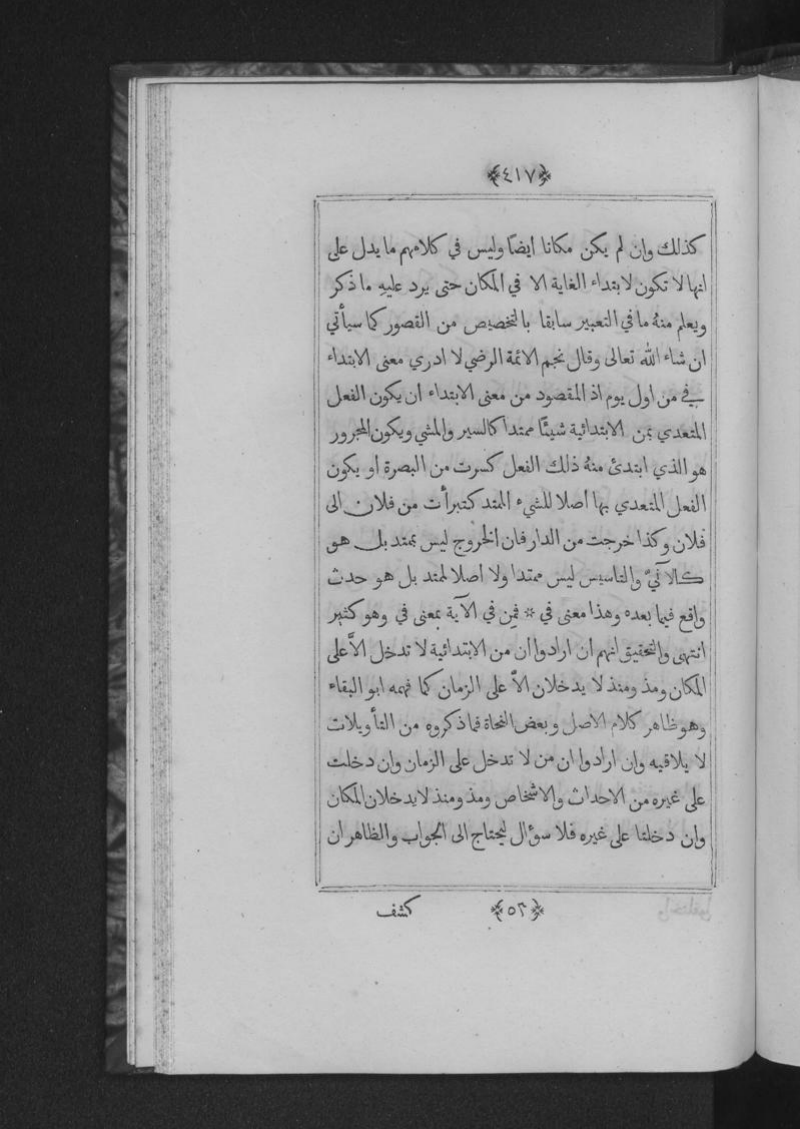 ﴿٤١٧﴾
كذلك وان لم يكن مكانا ايضًا وليس في كلامهم ما يدل على
انها لا تكون لابتداء الغاية الا في المكان حتى يرد عليهِ ما ذكر
ويعلم منهُ ما في التعبير سابقا بالتخصيص من القصور كما سيأتي
ان شاء الله تعالى وقال نجم الائمة الرضي لا ادري معنى الابتداء
في من اول يوم اذ المقصود من معنى الابتداء ان يكون الفعل
المتعدي بمن الابتدائية شيئًا ممتدا كالسير والمشي ويكون المجرور
هو الذي ابتدئ منهُ ذلك الفعل كسرت من البصرة او يكون
الفعل المتعدي بها اصلا للشيء الممتد كتبرأت من فلان الى
فلان وكذا خرجت من الدار فان الخروج ليس بممتد بل هو
كالآنيّ والتاسيس ليس ممتدا ولا اصلا لممتد بل هو حدث
واقع فيما بعده وهذا معنى في * فمن في الآية بمعنى في وهو كثير
انتهى والتحقيق انهم ان ارادوا ان من الابتدائية لا تدخل الاَّ على
المكان ومذ ومنذ لا يدخلان الاَّ على الزمان كما فهمه ابو البقاء
وهو ظاهر كلام الاصل وبعض النحاة فما ذكروه من التأويلات
لا يلاقيه وان ارادوا ان من لا تدخل على الزمان وان دخلت
على غيره من الاحداث والاشخاص ومذ ومنذ لا يدخلان المكان
وان دخلتا على غيره فلا سوءال ليحتاج الى الجواب والظاهر ان
﴿٥٣﴾ كشف